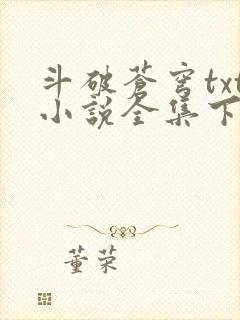 斗破苍穹txt
小说全集下
董荣